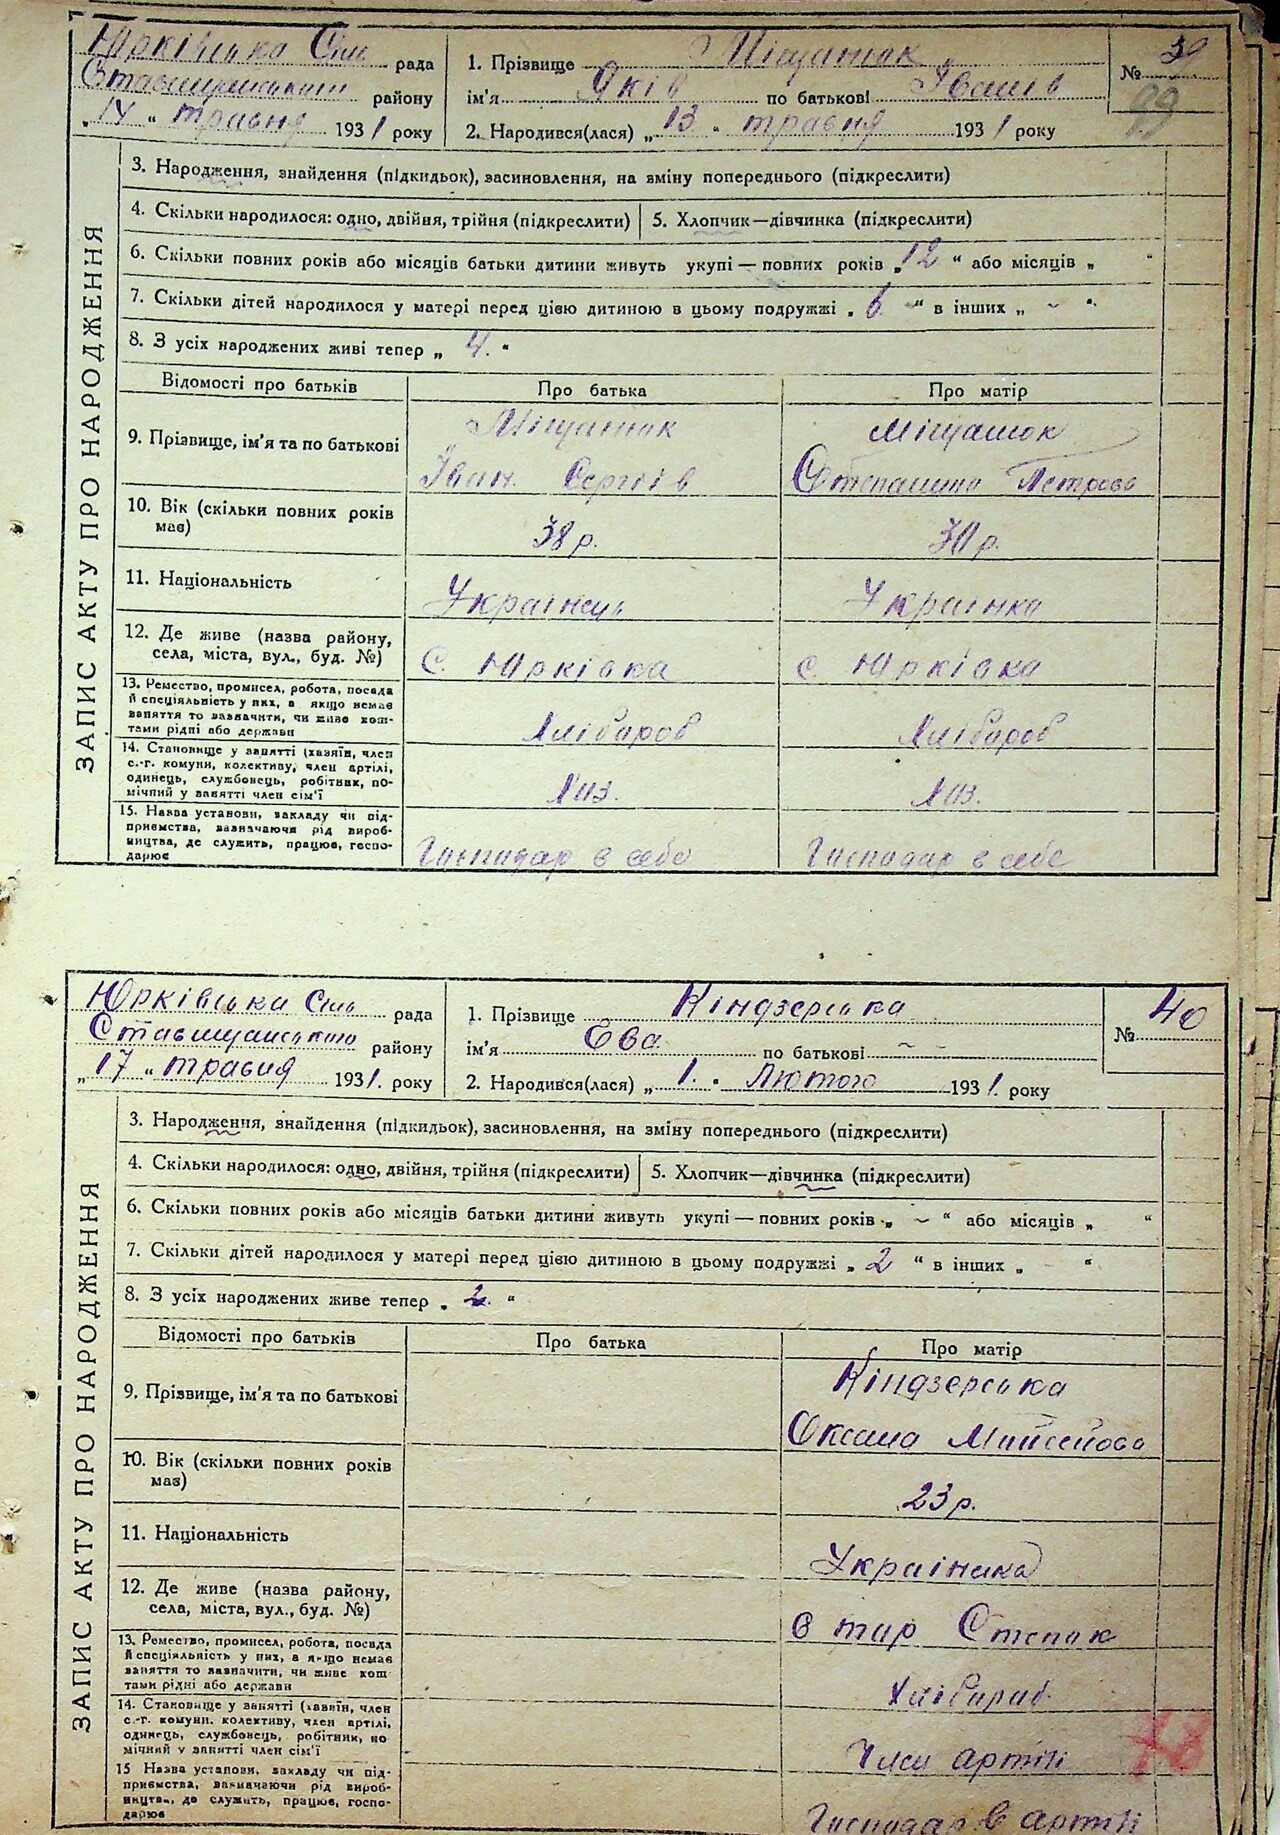 Юрківська Сіль рада
Ставищанського району
„14“ травня 1931 року
1. Прізвище Міщанюк
ім'я Яків по батькові Іванів
2. Народився(лася) „13“ травня 1931 року
№ 39
99
ЗАПИС АКТУ ПРО НАРОДЖЕННЯ
3. Народження, знайдення (підкидьок), засиновлення, на зміну попереднього (підкреслити)
4. Скільки народилося: одно, двійня, трійня (підкреслити) 5. Хлопчик—дівчинка (підкреслити)
6. Скільки повних років або місяців батьки дитини живуть укупі — повних років „12“ або місяців „ “
7. Скільки дітей народилося у матері перед цією дитиною в цьому подружжі „6“ в інших „ ~ “
8. З усіх народжених живі тепер „4.“
Відомості про батьків Про батька Про матір
9. Прізвище, ім'я та по батькові
Міщанюк
Іван Сергіїв
Міщанюк
Степанина Петрова
10. Вік (скільки повних років
має)
38 р. 30 р.
11. Національність Українець Українка
12. Де живе (назва району,
села, міста, вул., буд. №)
с. Юрківка с. Юрківка
13. Ремество, промисел, робота, посада
й спеціяльність у них, а якщо немає
заняття то зазначити, чи живе кош-
тами рідні або держави
Хлібороб Хлібороб
14. Становище у занятті (хазяїн, член
с.-г. комуни, колективу, член артілі,
одинець, службовець, робітник, по-
мічний у занятті член сім'ї
Хаз. Хаз.
15. Назва установи, закладу чи під-
приємства, зазначаючи рід вироб-
ництва, де служить, працює, госпо-
дарює
Господар в себе Господар в себе
Юрківська Сіль рада
Ставищанського району
„17“ травня 1931. року
1. Прізвище Кіндзерська
ім'я Ева по батькові ~ ~
2. Народився(лася) „1.“ Лютого 1931. року
№ 40
ЗАПИС АКТУ ПРО НАРОДЖЕННЯ
3. Народження, знайдення (підкидьок), засиновлення, на зміну попереднього (підкреслити)
4. Скільки народилося: одно, двійня, трійня (підкреслити) 5. Хлопчик—дівчинка (підкреслити)
6. Скільки повних років або місяців батьки дитини живуть укупі — повних років „ ~ “ або місяців „ “
7. Скільки дітей народилося у матері перед цією дитиною в цьому подружжі „2“ в інших „ - “
8. З усіх народжених живе тепер „2.“
Відомості про батьків Про батька Про матір
9. Прізвище, ім'я та по батькові
Кіндзерська
Оксана Мойсейова
10. Вік (скільки повних років
має)
23 р.
11. Національність Українка
12. Де живе (назва району,
села, міста, вул., буд. №)
13. Ремество, промисел, робота, посада
й спеціяльність у них, а якщо немає
заняття то зазначити, чи живе кош
тами рідні або держави
Хлібороб
14. Становище у занятті (хазяїн, член
с.-г. комуни, колективу, член артілі,
одинець, службовець, робітник, по
мічний у занятті член сім'ї
Член артілі
15 Назва установи, закладу чи під-
приємства, зазначаючи рід вироб-
ництва, де служить, працює, госпо-
дарює
Господар в артілі